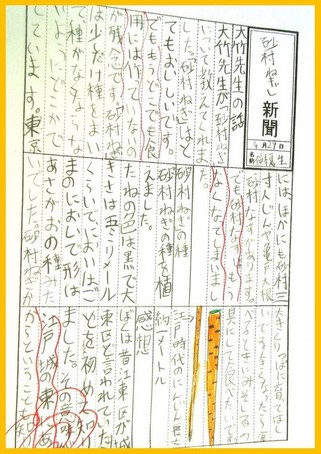 砂村ねぎ新聞
4月27日
大竹先生の話
大竹先生が「砂村ねぎ」
について教えてくれま
した。砂村ねぎはと
てもよいしいです。
でももうどこでも食
用には作ってないの
が残念で砂村ねぎ
は少しだけ種をまい
て種がなくならな
いようにどこかで
しています。東京
には、ほかにも砂村三
寸にんじんや亀戸大根
砂村なすがあります。
でも砂村なすはもう
なくなってしまいま
砂村ねぎの種
砂村ねぎの種を植
えました。
たねの色は黒で大
きさは五ミリメール
くらいで、においはご
まのにおいで形は
あさがおの種みた
いでした。砂村ねぎが
大きくりっぱに育ってほし
なったら食
べるときにみそしるの
具にして食べたいです
江戸時代のにんじん長さ
約一メートル
感想
ぼくは昔江東区が城
東区と言われていた
ことを初めて知り
ました。その意味が
江戸城東にあ
るからということ